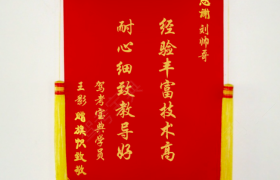 感谢刘帅哥
经验丰富技术高
耐心细致教导好
驾考宝典学员
王影赠旗帜致敬